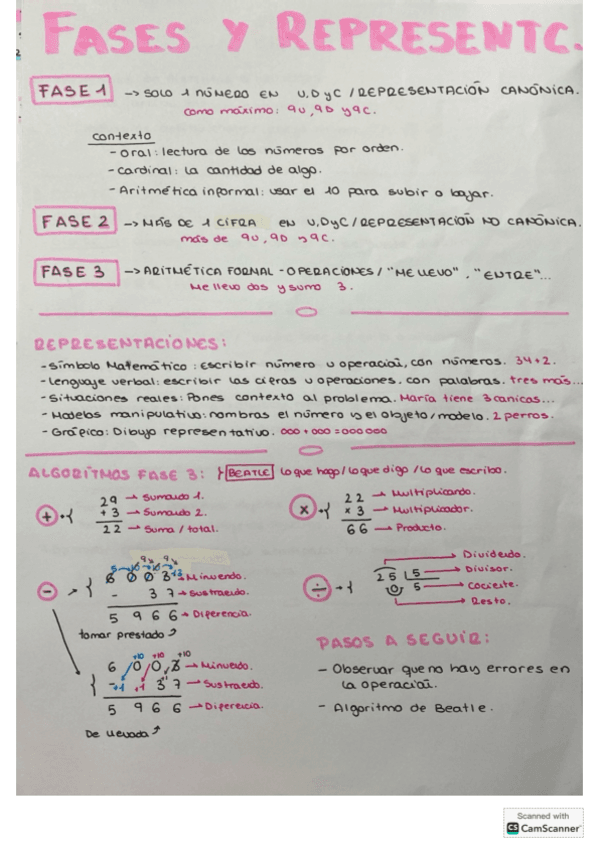 FASES Y REPRESENTC.
FASE 1 -> SOLO 1 NÚMERO EN U,D y C / REPRESENTACIÓN CANÓNICA.
como máximo: 9U, 9D y 9C.
contexto
- Oral: lectura de los números por orden.
- Cardinal: la cantidad de algo.
- Aritmética informal: usar el 10 para subir o bajar.
FASE 2 -> MÁS DE 1 CIFRA EN U,D y C / REPRESENTACIÓN NO CANÓNICA.
más de 9U, 9D y 9C.
FASE 3 -> ARITMÉTICA FORMAL - OPERACIONES / "ME LLEVO", "ENTRE"...
Me llevo dos y sumo 3.
REPRESENTACIONES:
- Símbolo Matemático: escribir número u operación, con números. 34+2.
- Lenguaje verbal: escribir las cifras u operaciones. con palabras. tres más...
- Situaciones reales: Pones contexto al problema. María tiene 3 canicas...
- Modelos manipulativo: nombras el número y el objeto/modelo. 2 perros.
- Gráfico: Dibujo representativo. 000 + 000 = 000 000
ALGORITMOS FASE 3: } BEATLE } lo que hago / lo que digo / lo que escribo.
+ - { 29 -> Sumando 1.
+ 3 -> Sumando 2.
22 -> Suma / total.
× - { 22 -> Multiplicando.
× 3 -> Multiplicador.
66 -> Producto.
- -> { 6 0 0 3 -> Minuendo.
- 3 7 -> Sustraendo.
5 9 6 6 -> Diferencia
tomar prestado
÷ - { 25 | 5
0 5
Dividendo.
Divisor.
Cociente.
Resto.
+10 +10 +10
{ 6 0 0 3 -> Minuendo.
- +1 +1 3 7 -> Sustraendo.
5 9 6 6 -> Diferencia.
De llevada
PASOS A SEGUIR:
- Observar que no hay errores en
la operación.
- Algoritmo de Beatle.
Scanned with
CS CamScanner